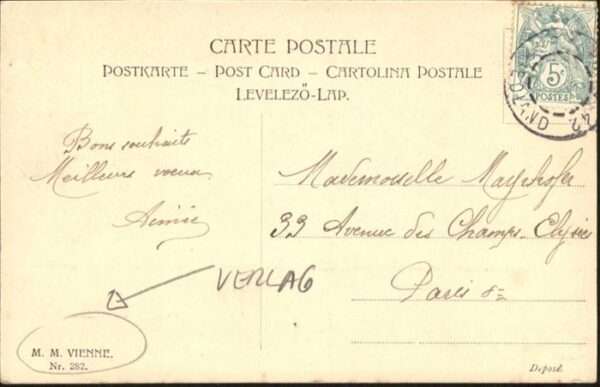 CARTE POSTALE
POSTKARTE – POST CARD – CARTOLINA POSTALE
LEVELEZŐ-LAP.
5c
POSTES
Bons souhaits
Meilleurs voeux
Aimée
Mademoiselle Mayerhofer
33 Avenue des Champs-Elysées
Paris
VERLAG
M. M. VIENNE.
Nr. 282.
Deposé.